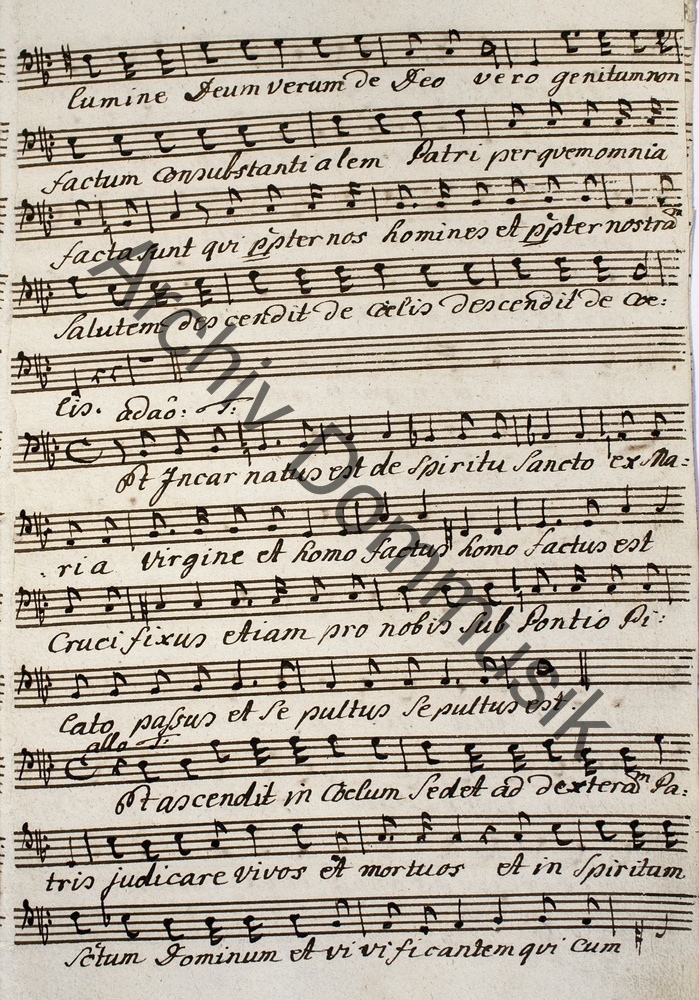 lumine Deum verum de Deo vero genitum non
factum consubstantialem Patri per quem omnia
facta sunt qui ppter nos homines et ppter nostrã
salutem descendit de Coelis descendit de Coe:
lis. adaõ: T:
Et Incarnatus est de Spiritu Sancto ex Ma:
ria virgine et homo factus homo factus est
Crucifixus etiam pro nobis sub Pontio Pi:
lato passus et Sepultus Sepultus est.
allo T:
Et ascendit in Coelum Sedet ad dexteram Pa:
tris judicare vivos et mortuos et in Spiritum
Sctum Dominum et vivificantem qui cum
Archiv Dommusik